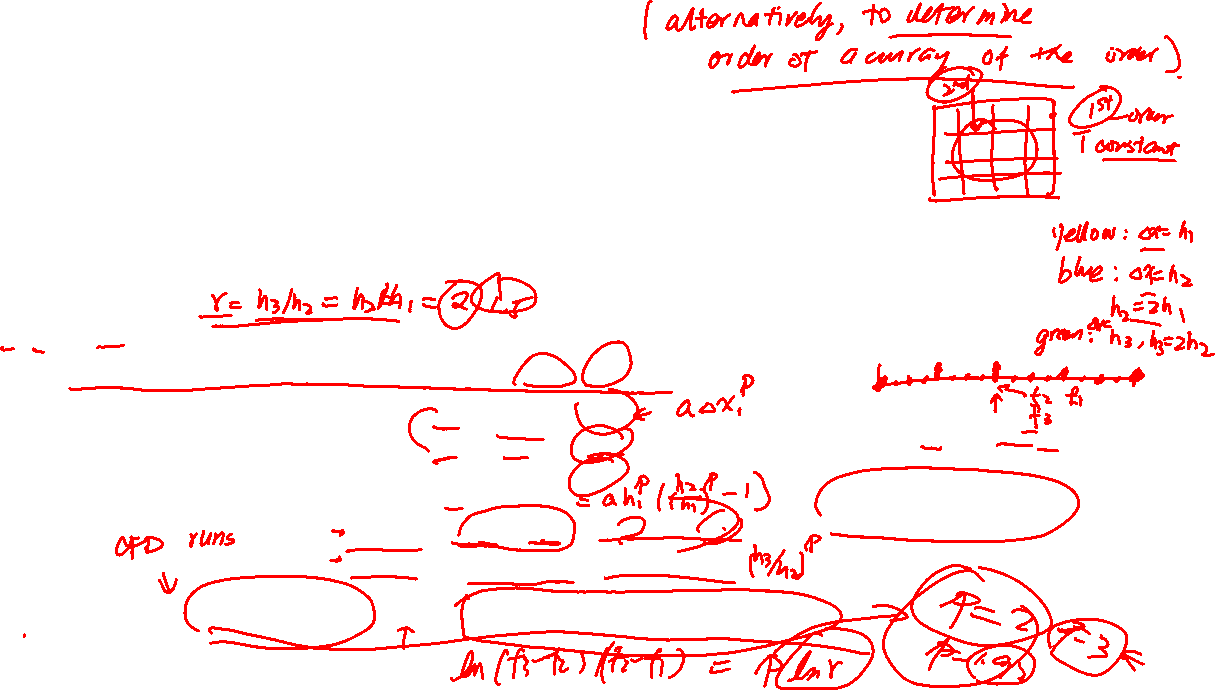 (alternatively, to determine
order of accuracy of the order)
2nd
1st order
constant
yellow: Δx = h1
blue: Δx = h2
h2 = 2h1
green: Δx = h3, h3 = 2h2
r = h3/h2 = h2/h1 = 2 1.5
f2 f1
f3
= aΔx1^p
= a h1^p ((h2/h1)^p - 1)
(h3/h2)^p
CFD runs
p = 2
p = 1.93
p = 3
ln (f3-f2)/(f2-f1) = p ln r